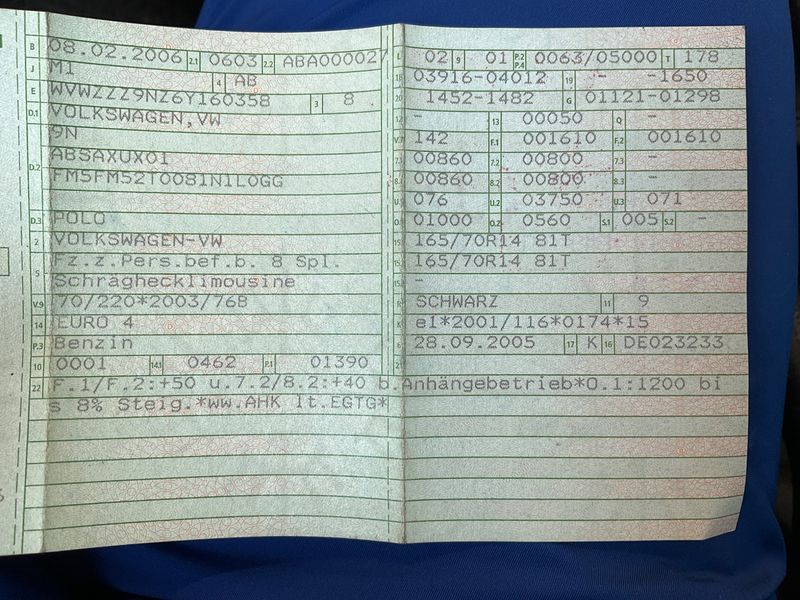 B 08.02.2006 2.1 0603 2.2 ABA000027 L 02 9 01 P.2 P.4 0063/05000 T 178
J M1 4 AB 18 03916-04012 19 - -1650
E WVWZZZ9NZ6Y160358 3 8 20 1452-1482 G 01121-01298
D.1 VOLKSWAGEN,VW 12 - 13 00050 Q -
9N V.7 142 F.1 001610 F.2 001610
D.2 ABSAXUX01 7.1 00860 7.2 00800 7.3 -
FM5FM52T0081N1L0GG 8.1 00860 8.2 00800 8.3 -
U.1 076 U.2 03750 U.3 071
D.3 POLO O.1 01000 O.2 0560 S.1 005 S.2 -
2 VOLKSWAGEN-VW 15.1 165/70R14 81T
5 Fz.z.Pers.bef.b. 8 Spl. 15.2 165/70R14 81T
Schräghecklimousine 15.3 -
V.9 70/220*2003/76B R SCHWARZ 11 9
14 EURO 4 K e1*2001/116*0174*15
P.3 Benzin 6 28.09.2005 17 K 16 DE023233
10 0001 14.1 0462 P.1 01390 21
22 F.1/F.2:+50 u.7.2/8.2:+40 b.Anhängebetrieb*O.1:1200 bi
s 8% Steig.*ww.AHK lt.EGTG*